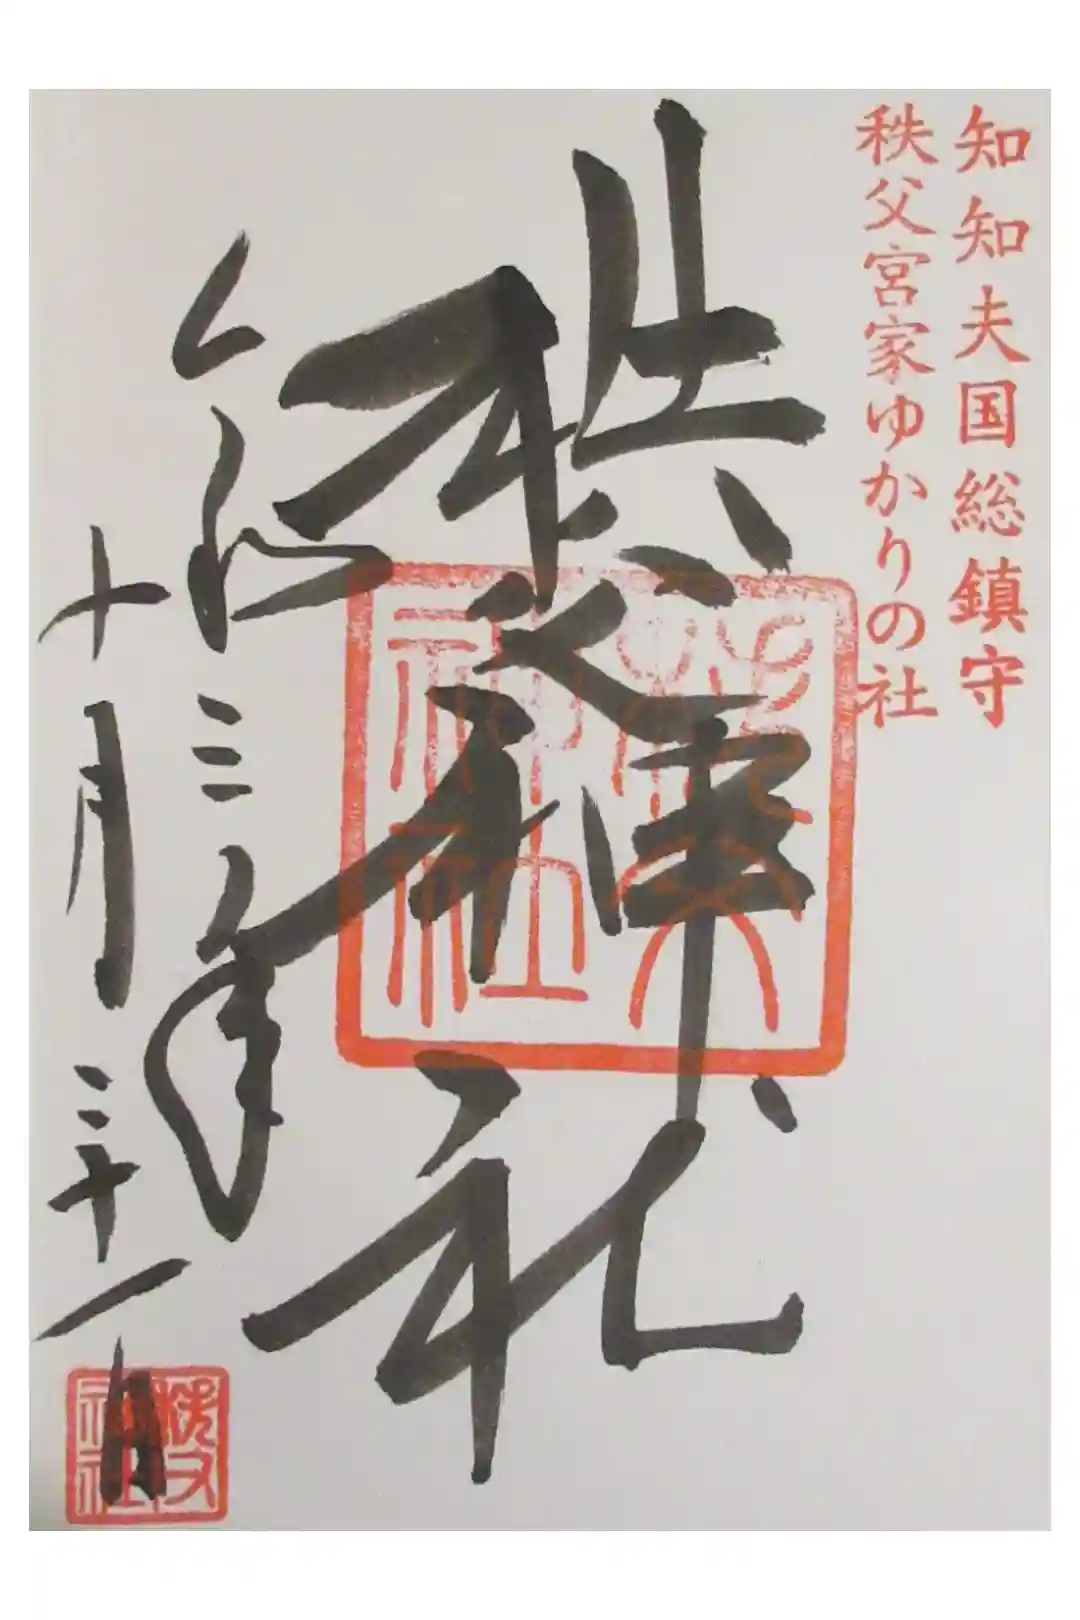 知知夫国総鎮守
秩父宮家ゆかりの社
秩父神社
令和三年
十月三十一日
秩父
神社
秩父
神社